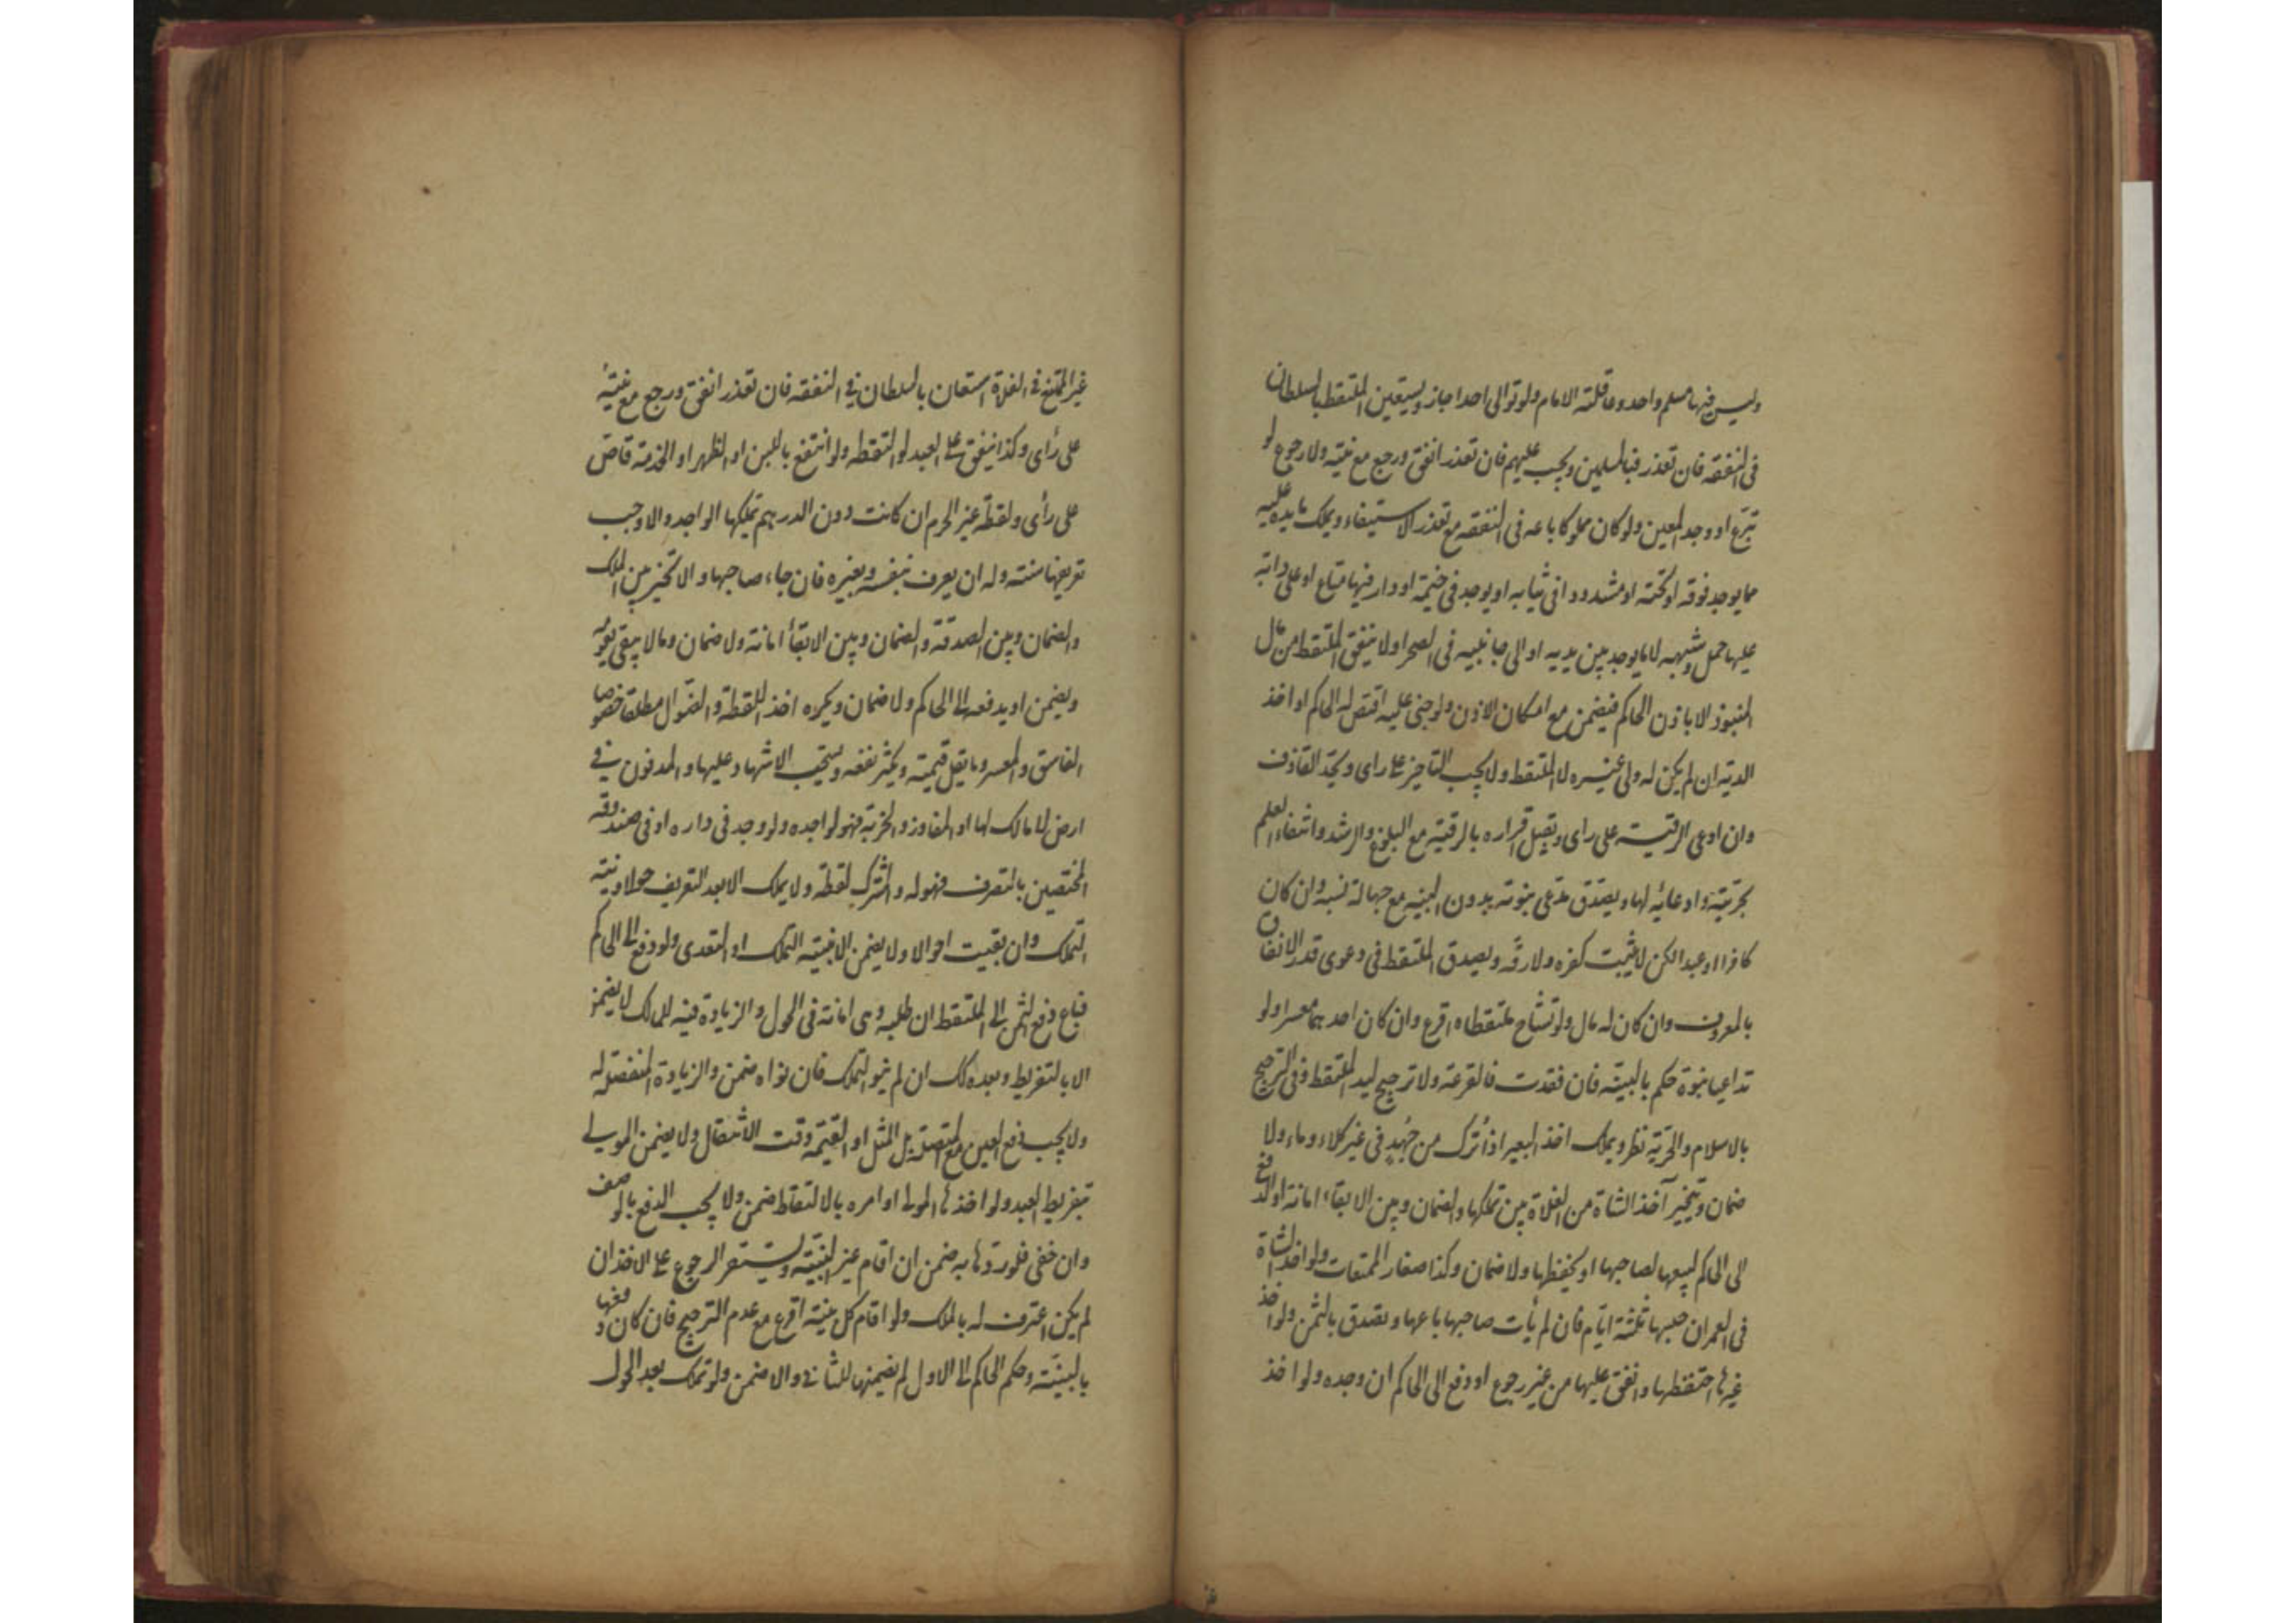 وليس فيها مسلم واحد وعاقلته الامام ولو توالى احدا جاز ويستعين الملتقط بالسلطان
فى النفقه فان تعذر فبالمسلمين ويجب عليهم فان تعذر انفق ورجع مع نيته ولا رجوع لو
تبرع او وجد المعين ولو كان مملوكا باعه فى النفقه مع تعذر الاستيفاء ويملك ما يده عليه
مما يوجد فوقه او تحته او مشدودا فى ثيابه او يوجد فى خيمة او دار فيها متاع او على دابة
عليها حمل وشبهه لا ما يوجد بين يديه او الى جانبيه فى الصحرا ولا ينفق الملتقط من مال
المنبوذ الا باذن الحاكم فيضمن مع امكان الاذن ولو جنى عليه اقتص له الحاكم او اخذ
الدية ان لم يكن له ولى غيره لا الملتقط ولا يجب التأخير على راى ويحد القاذف
وان ادعى الرقية على راى ويقبل اقراره بالرقية مع البلوغ والرشد وانتفاء العلم
بحريته وادعائه لها ويصدق مدعى بنوته بدون البينه مع جهالة نسبه وان كان
كافرا او عبدا لكن لا يثبت كفره ولا رقه ويصدق الملتقط فى دعوى قدر الانفاق
بالمعروف وان كان له مال ولو تشاح ملتقطاه اقرع وان كان احدهما معسرا ولو
تداعيا بنوة حكم بالبينة فان فقدت فالقرعة ولا ترجيح ليد الملتقط وفى الترجيح
بالاسلام والحرية نظر ويملك اخذ البعير اذا ترك من جهد فى غير كلاء وماء ولا
ضمان ويتخير آخذ الشاة من الفلاة بين تملكها والضمان وبين الابقاء امانة او الدفع
الى الحاكم ليبيعها لصاحبها او يحفظها ولا ضمان وكذا صغار الممتنعات ولو اخذ الشاة
فى العمران حبسها ثلثة ايام فان لم يأت صاحبها باعها وتصدق بالثمن ولو اخذ
غيرها احتفظها وانفق عليها من غير رجوع او دفع الى الحاكم ان وجده ولو اخذ
غير الممتنع فى الفلاة استعان بالسلطان فى النفقه فان تعذر انفق ورجع مع نيته
على رأى وكذا ينفق على العبد لو التقطه ولو انتفع باللبن او الظهر او الخدمة قاص
على رأى ولقطة غير الحرم ان كانت دون الدرهم تملكها الواجد والا وجب
تعريفها سنة وله ان يعرف بنفسه وبغيره فان جاء صاحبها والا تخير بين الملك
والضمان وبين الصدقة والضمان وبين الابقاء امانة ولا ضمان وما لا يبقى يقومه
ويضمن او يدفعه الى الحاكم ولا ضمان ويكره اخذ اللقطة والضوال مطلقا خصوصا
الفاسق والمعسر وما يقل قيمته ويكثر نفعه ويستحب الاشهاد عليها والمدفون فى
ارض لا مالك لها او المفاوز والخربة فهو لواجده ولو وجد فى داره او فى صندوقه
المختصين بالتصرف فهو له والمشترك لقطة ولا يملك الا بعد التعريف حولا ونية
التملك وان بقيت احوالا ولا يضمن الا بنية التملك او التعدى ولو دفع الى الحاكم
فباع دفع الثمن الى الملتقط ان طلبه وهى امانة فى الحول والزيادة فيه للمالك لا يضمن
الا بالتفريط وبعده كذلك ان لم ينو التملك فان نواه ضمن والزيادة المنفصلة له
ولا يجب دفع العين مع المتصلة بل المثل او القيمة وقت الانتقال ولا يضمن المولى
بتفريط العبد ولو اخذها المولى او امره بالالتقاط ضمن ولا يجب الدفع بالوصف
وان خفى فلو ردها به ضمن ان اقام غير البينة ويستقر الرجوع على الاخذ ان
لم يكن اعترف له بالملك ولو اقام كل بينة اقرع مع عدم الترجيح فان كان دفعها
بالبينة وحكم الحاكم الى الاول لم يضمنها للثانى والا ضمن ولو تملك بعد الحول